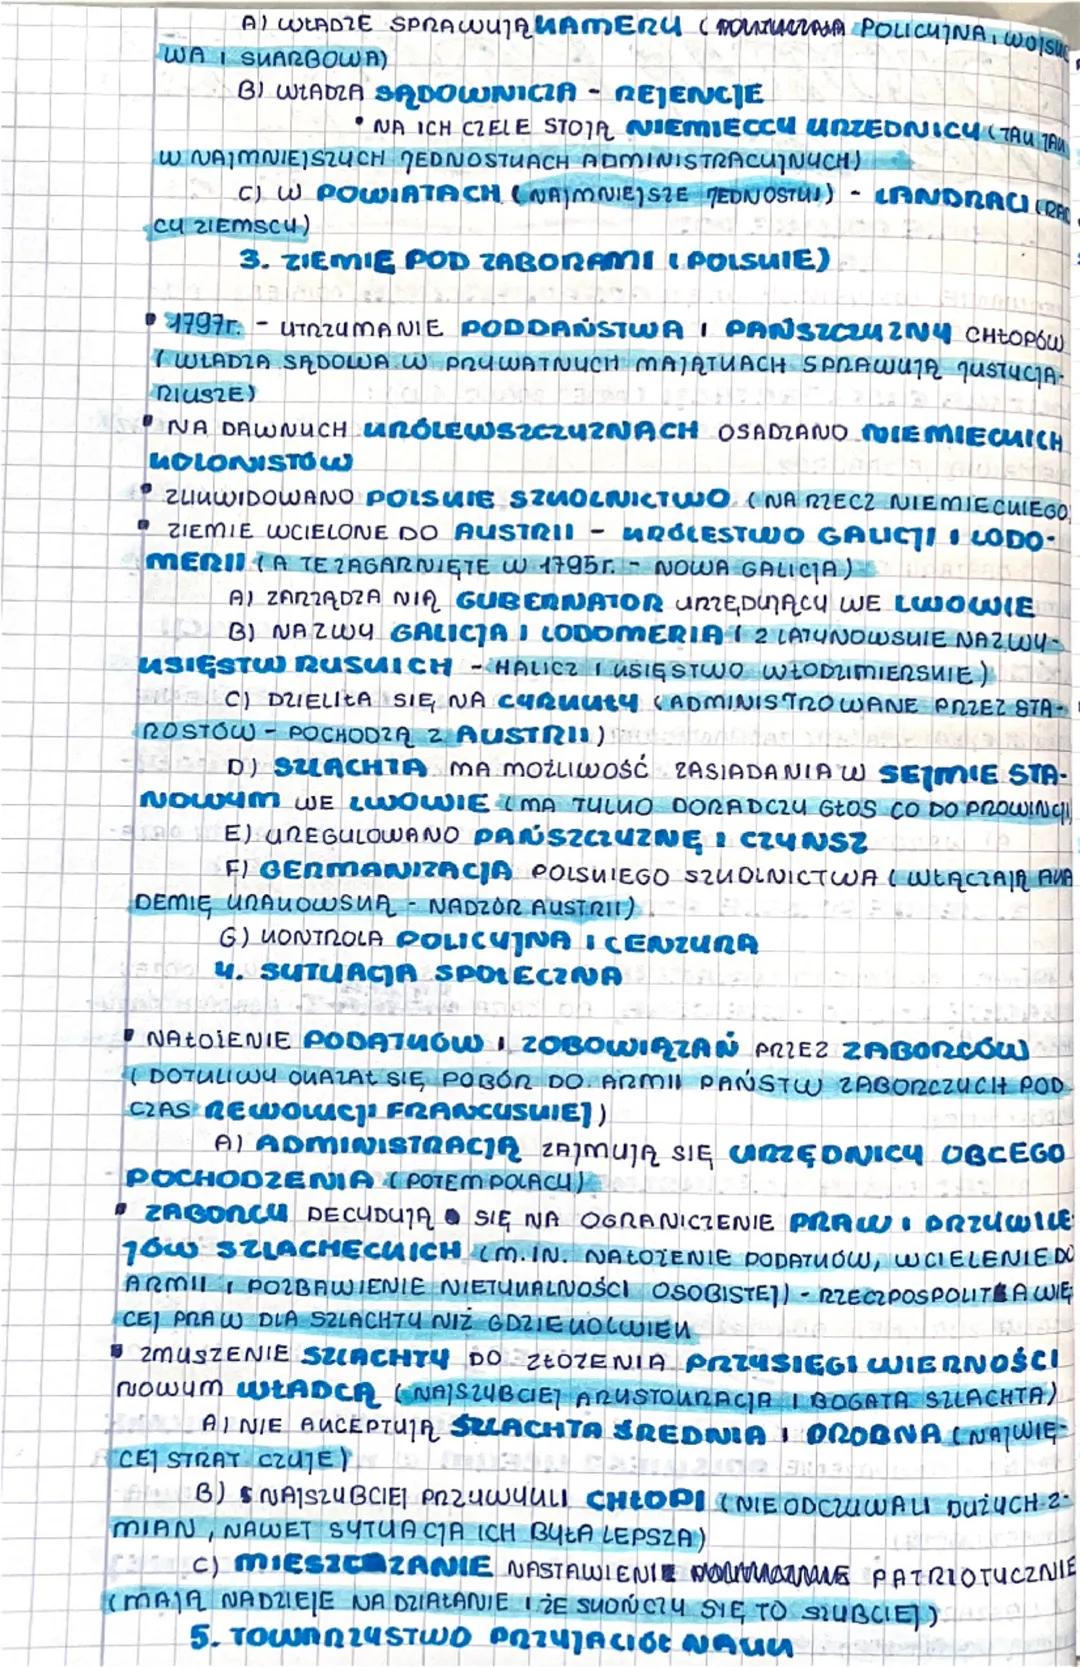 A) WŁADZE SPRAWUJĄ KAMERY ( POLICYJNA, WOJSKO
WA I SKARBOWA)
B) WŁADZA SĄDOWNICZA - REJENCJE
• NA ICH CZELE STOJĄ NIEMIECCY URZĘDNICY (TAK JAK
W NAJMNIEJSZYCH JEDNOSTKACH ADMINISTRACYJNYCH)
C) W POWIATACH (NAJMNIEJSZE JEDNOSTKI) - LANDRACI (RAD
CY ZIEMSCY)
3. ZIEMIE POD ZABORAMI (POLSKIE)
• 1797r. - UTRZUMANIE PODDAŃSTWA I PAŃSZCZYZNY CHŁOPÓW
(WŁADZA SĄDOWA W PRYWATNYCH MAJĄTKACH SPRAWUJĄ JUSTYCJA-
RIUSZE)
• NA DAWNYCH KRÓLEWSZCZYZNACH OSADZANO NIEMIECKICH
KOLONISTÓW
• ZLIKWIDOWANO POLSKIE SZKOLNICTWO (NA RZECZ NIEMIECKIEGO)
• ZIEMIE WCIELONE DO AUSTRII - KRÓLESTWO GALICJI I LODO-
MERII (A TE ZAGARNIĘTE W 1795r. - NOWA GALICJA)
A) ZARZĄDZA NIĄ GUBERNATOR URZĘDUJĄCY WE LWOWIE
B) NAZWY GALICJA I LODOMERIA (2 ŁATYNOWSKIE NAZWY-
KSIĘSTW RUSKICH - HALICZ I KSIĘSTWO WŁODZIMIERSKIE)
C) DZIELIŁA SIĘ NA CYRKUŁY (ADMINISTROWANE PRZEZ STA-
ROSTÓW - POCHODZĄ Z AUSTRII)
D) SZLACHTA MA MOŻLIWOŚĆ ZASIADANIA W SEJMIE STA-
NOWYM WE LWOWIE (MA TYLKO DORADCZY GŁOS CO DO PROWINCJI)
E) UREGULOWANO PAŃSZCZYZNĘ I CZYNSZ
F) GERMANIZACJA POLSKIEGO SZKOLNICTWA (WŁĄCZAJĄ AKA
DEMIĘ KRAKOWSKĄ - NADZÓR AUSTRII)
G) KONTROLA POLICYJNA I CENZURA
4. SYTUACJA SPOŁECZNA
• NAŁOŻENIE PODATKÓW I ZOBOWIĄZAŃ PRZEZ ZABORCÓW
(DOTKLIWY OKAZAŁ SIĘ POBÓR DO ARMII PAŃSTW ZABORCZYCH POD
CZAS REWOLUCJI FRANCUSKIEJ)
A) ADMINISTRACJĄ ZAJMUJĄ SIĘ URZĘDNICY OBCEGO
POCHODZENIA (POTEM POLACY)
• ZABORCY DECYDUJĄ SIĘ NA OGRANICZENIE PRAW I PRZYWILE
JÓW SZLACHECKICH (M.IN. NAŁOŻENIE PODATKÓW, WCIELENIE DO
ARMII I POZBAWIENIE NIETYKALNOŚCI OSOBISTEJ) - RZECZPOSPOLITA WIĘ
CEJ PRAW DLA SZLACHTY NIŻ GDZIEKOLWIEK
• ZMUSZENIE SZLACHTY DO ZŁOŻENIA PRZYSIĘGI WIERNOŚCI
NOWYM WŁADCĄ (NAJSZYBCIEJ ARYSTOKRACJA I BOGATA SZLACHTA)
A) NIE AKCEPTUJĄ SZLACHTA ŚREDNIA I DROBNA (NAJWIĘ-
CEJ STRAT CZUJE)
B) NAJSZYBCIEJ PRZYWYKLI CHŁOPI (NIE ODCZUWALI DUŻYCH Z-
MIAN, NAWET SYTUACJA ICH BYŁA LEPSZA)
C) MIESZCZANIE NASTAWIENIE PATRIOTYCZNIE
(MAJĄ NADZIEJE NA DZIAŁANIE I ŻE SKOŃCZY SIĘ TO SZYBCIEJ)
5. TOWARZYSTWO PRZYJACIÓŁ NAUK